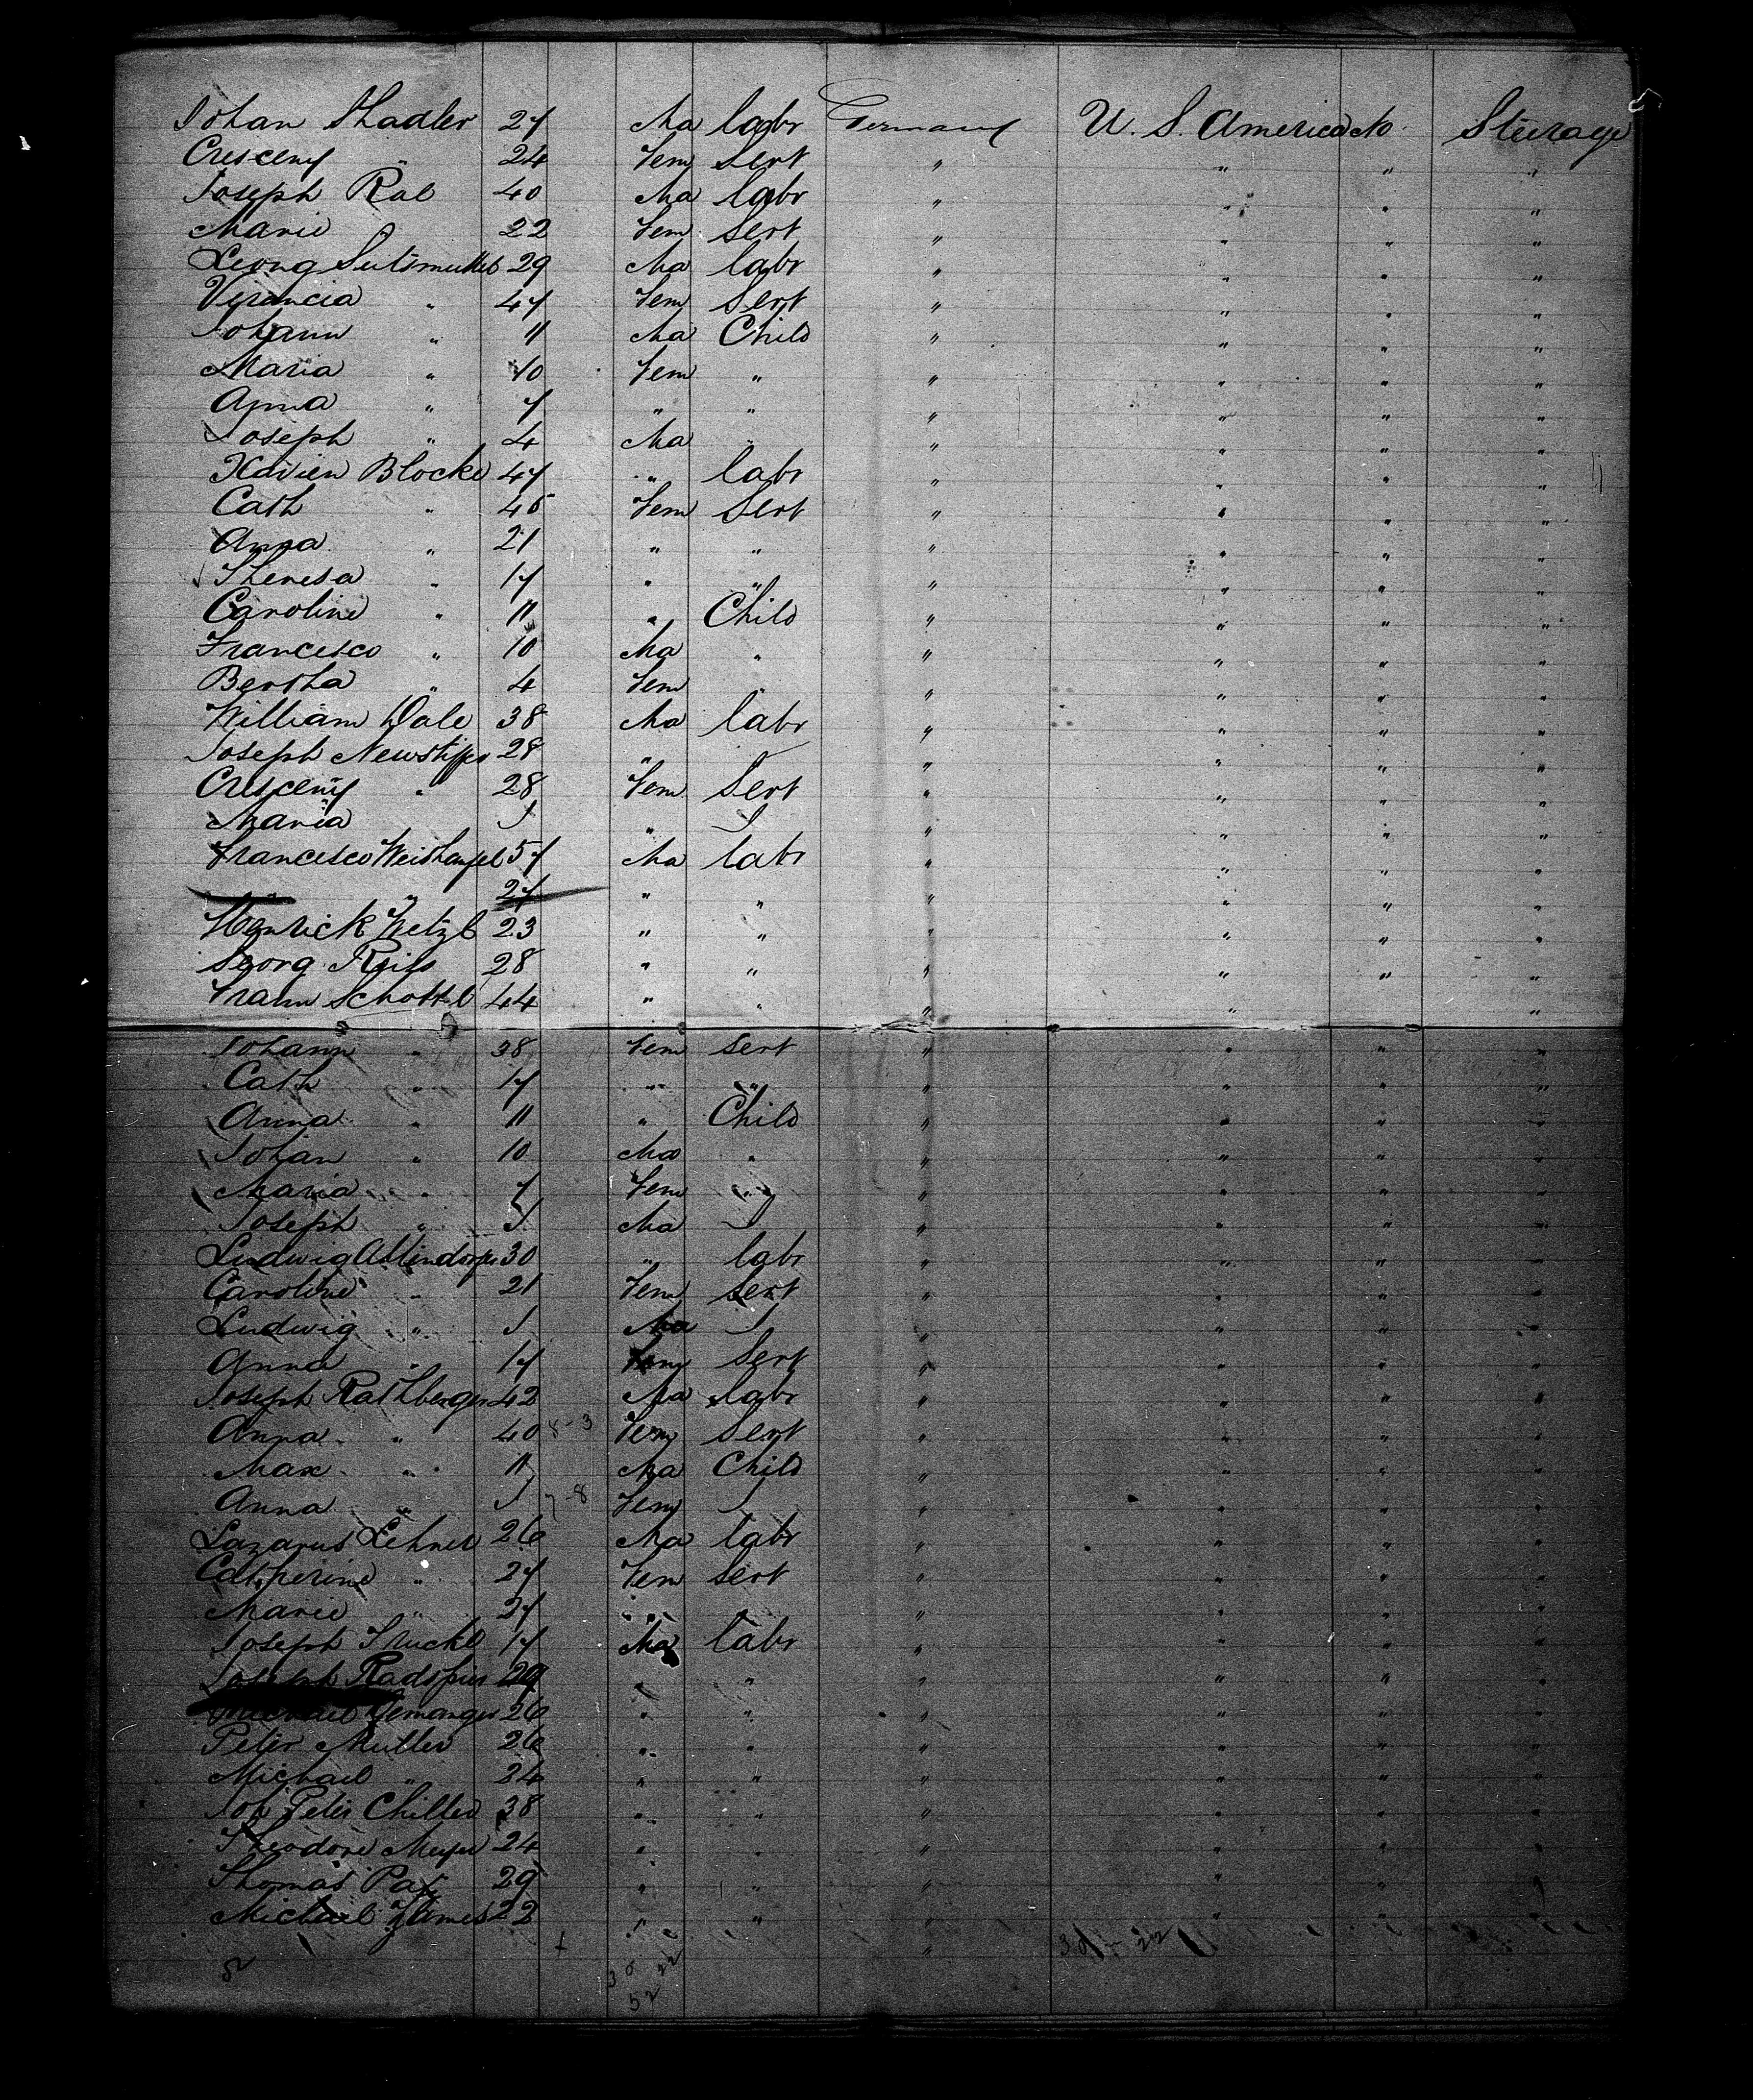 Johan Stadler 27 Ma labr Germany U. S. America No Steerage
Crescenz " 24 Fem Sert " " " "
Joseph Rab 40 Ma labr " " " "
Marie " 22 Fem Sert " " " "
Georg 29 Ma labr " " " "
" 47 Fem Sert " " " "
Johann " 11 Ma Child " " " "
Maria " 10 Fem " " " " "
Anna " 7 " " " " " "
Joseph " 4 Ma " " " " "
Xavien Blocke 47 " labr " " " "
Cath " 45 Fem Sert " " " "
Anna " 21 " " " " " "
Theresa " 17 " " " " " "
Caroline " 11 " Child " " " "
Francesco " 10 Ma " " " " "
Bertha " 4 Fem " " " " "
William Dale 38 Ma labr " " " "
Joseph 28 " " " " "
Crescenz " 28 Fem Sert " " " "
Maria " " " " "
Francesco 57 Ma labr " " " "
" " 27 " " " " " "
Henrick Wetzl 23 " " " " " "
Georg Reils 28 " " " " " "
Frann Schottl 44 " " " " " "
Johann " 38 Fem Sert " " " "
Cath " 17 " " " " " "
Anna " 11 " Child " " " "
Johan " 10 Ma " " " " "
Maria " 7 Fem " " " " "
Joseph " Ma " " " "
Ludwig 30 " labr " " " "
Caroline " 21 Fem Sert " " " "
Ludwig " Ma " " " "
Anna " 17 Fem Sert " " " "
Joseph Rathberger 42 Ma labr " " " "
Anna " 40 8-3 Fem Sert " " " "
Max " 11 Ma Child " " " "
Anna " 7-8 Fem " " " "
Lazarus Lehner 26 Ma labr " " " "
Catherine " 27 Fem Sert " " " "
Marie " 27 " " " " " "
Joseph Struckl 17 Ma labr " " " "
Joseph 29 " " " " " "
Michael 26 " " " " " "
Peter Muller 26 " " " " " "
Michael " 24 " " " " " "
Joh Peter Chiller 38 " " " " " "
Theodore Meyer 24 " " " " " "
Thomas Pax 29 " " " " " "
Michael James 22 " " " " " "
30 22
52